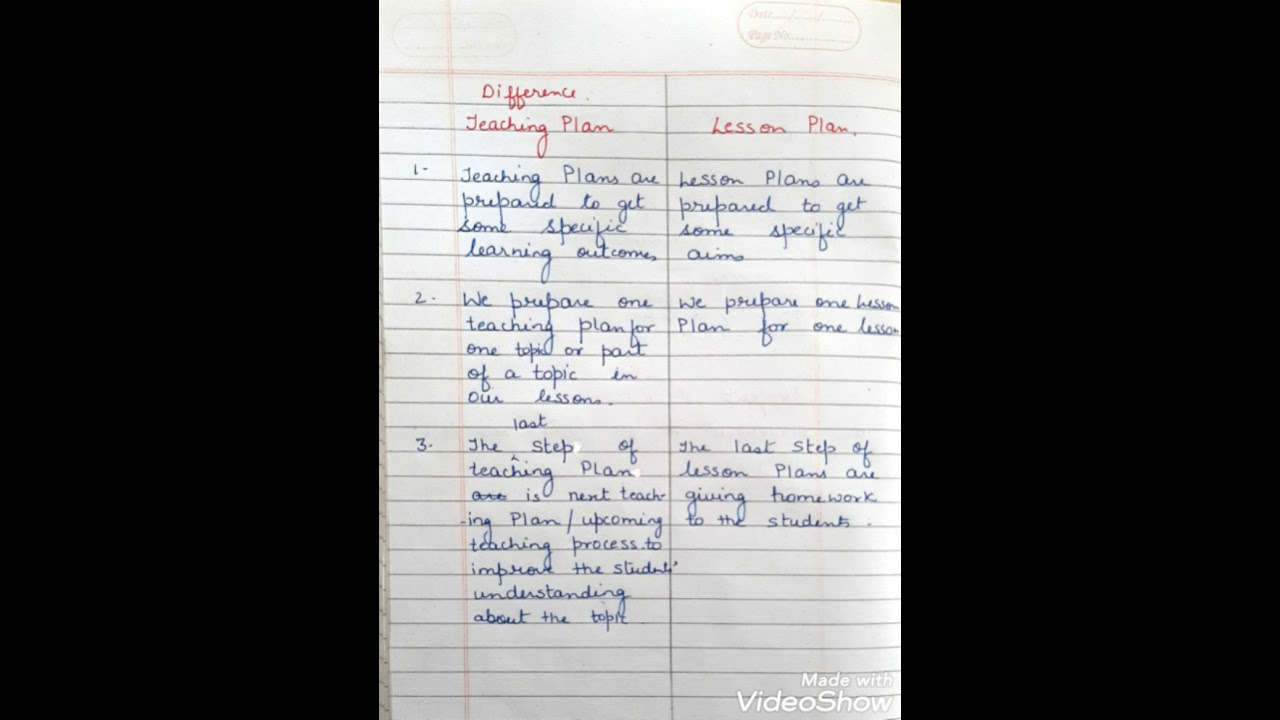 Date...../...../.....
Page No..........
Difference.
Teaching Plan
Lesson Plan.
1- Teaching Plans are
prepared to get
some specific
learning outcomes
Lesson Plans are
prepared to get
some specific
aims
2- We prepare one
teaching plan for
one topic or part
of a topic in
our lessons.
We prepare one Lesson
Plan for one lesson
3- The last step of
teaching Plan
are is next teach-
-ing Plan / upcoming
teaching process to
improve the students'
understanding
about the topic
The last step of
lesson Plans are
giving homework
to the students.
Made with
VideoShow